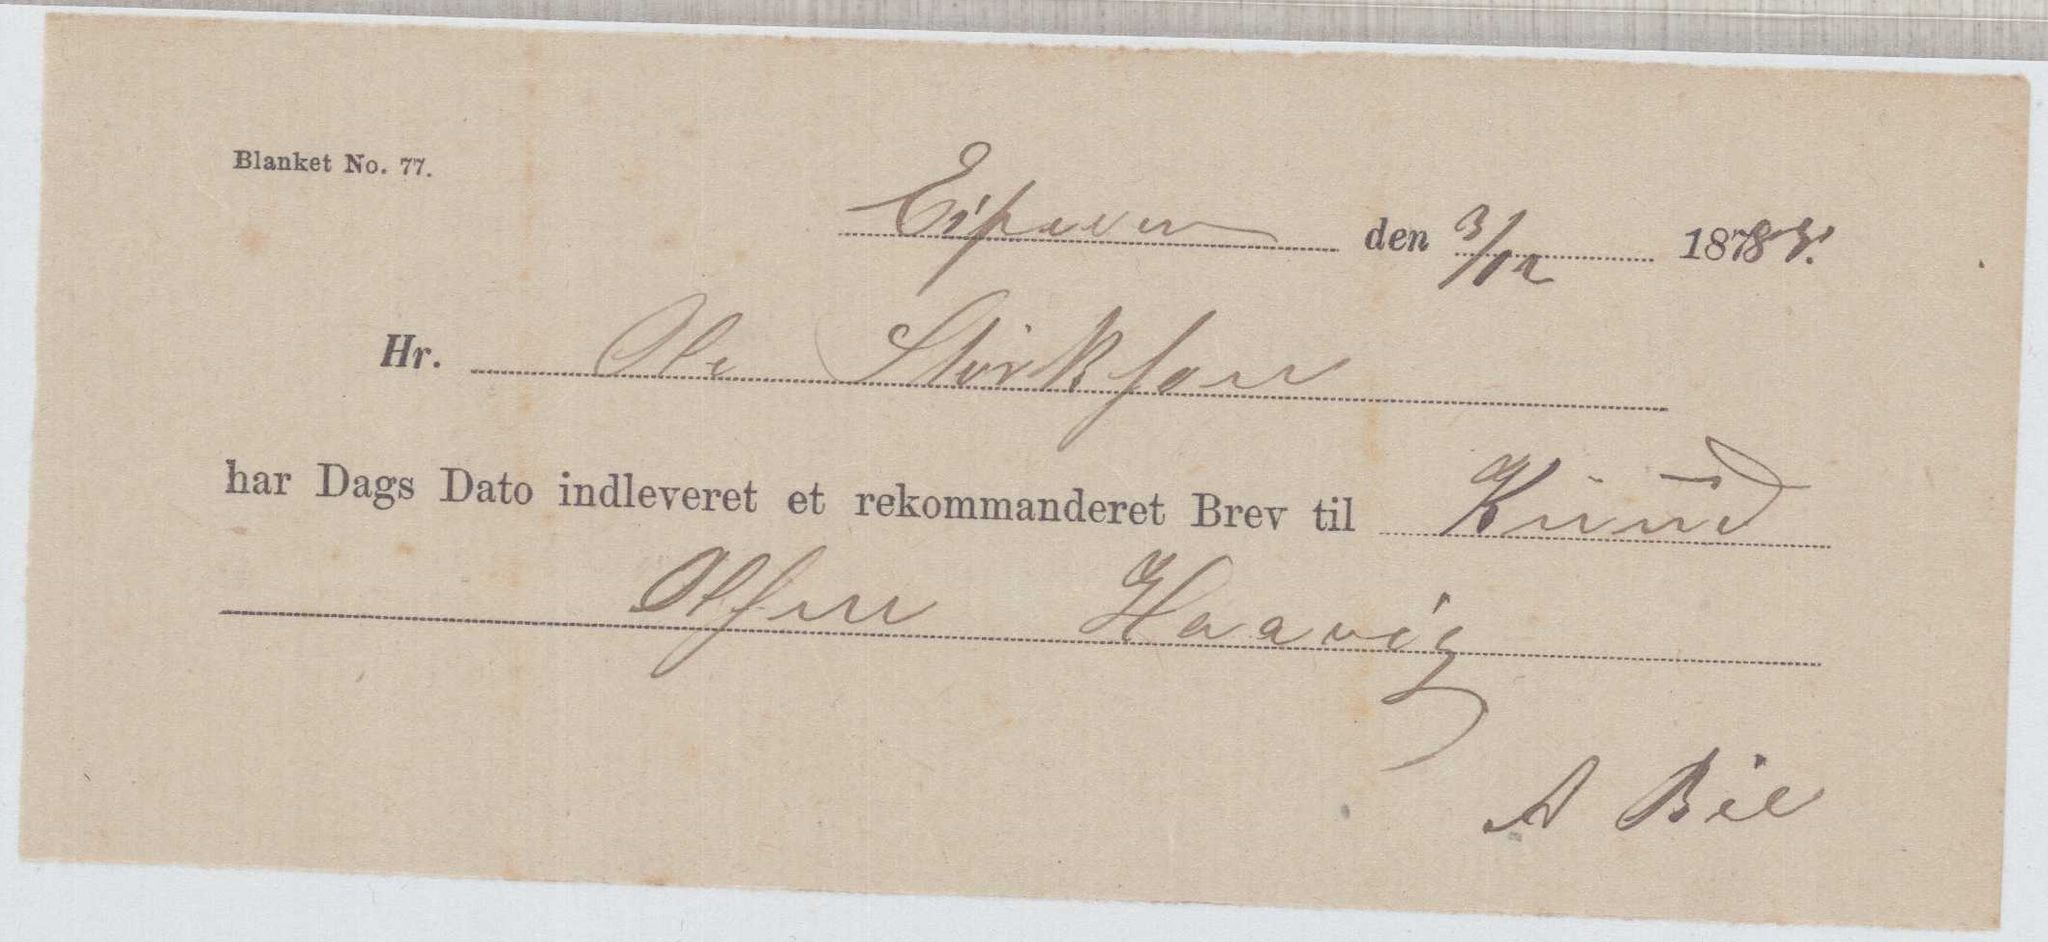 Blanket No. 77.
den 3/12 188
Hr. Ole Størksen
har Dags Dato indleveret et rekommanderet Brev til Knud
Olsen Haavig
A Bie